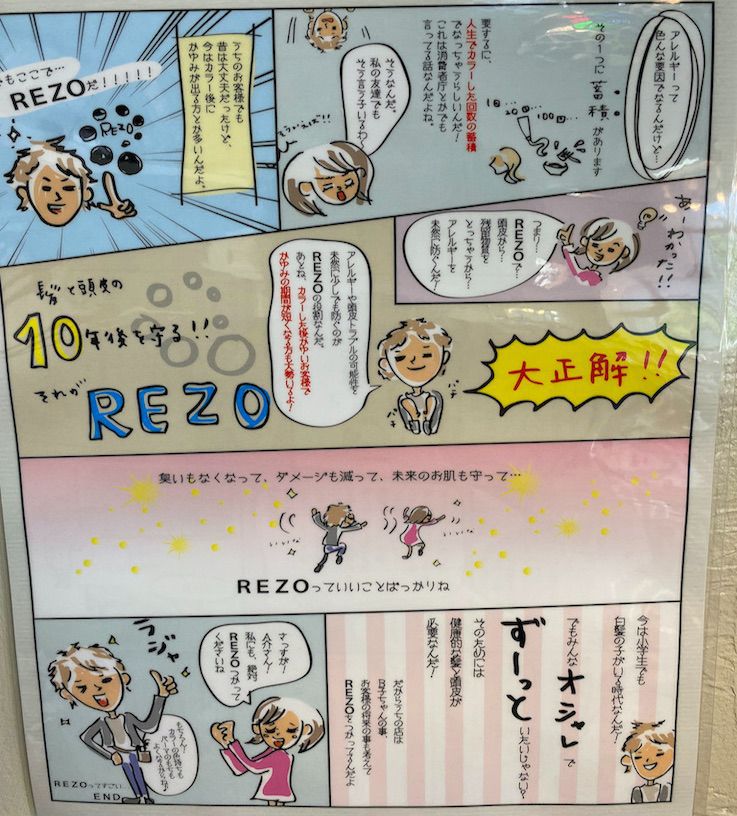 アレルギーって
色んな要因でなるんだけど…
その1つに蓄積があります
10…20…100…回
要するに、
人生でカラーした回数の蓄積
でなっちゃうらしいんだ！
これは消費者庁とかでも
言ってる話なんだよね。
そうなんだ。
私の友達でも
そう言う子いるわ〜
そういえば!!
うちのお客様でも
昔は大丈夫だったけど、
今はカラー後に
かゆみが出る方とか多いんだよ。
でもここで…
REZOだ！！！！！
REZO
あーわかった!!
つまり…
REZOで…
頭皮から…
残留物質を
とっちゃうから…
アレルギーを
未然に防ぐんだ！
大正解!!
パチ
パチ
アレルギーや頭皮トラブルの可能性を
未然に少しでも防ぐのが
REZOの役割なんだ。
あとね、カラーした後かゆいお客様で
かゆみの期間が短くなる方も大勢いるよ！
髪と頭皮の
10年後を守る!!
それが
REZO
臭いもなくなって、ダメージも減って、未来のお肌も守って…
いいね
いいね
REZOっていいことばっかりね
今は小学生でも
白髪の子がいる時代なんだ！
でもみんなオシャレで
ずーっといたいじゃない？
そのためには
健康的な髪と頭皮が
必要なんだ！
だからうちの店は
B子ちゃんの事、
お客様の将来の事も考えて
REZOをつかってるんだよ
さっすが！
A介さん！
私にも、絶対
REZOつかって
くださいね
ラジャ
もちろん！
カラーの色持ちも
パーマのもちも
よくなるからね♪
REZOってすごい…
END